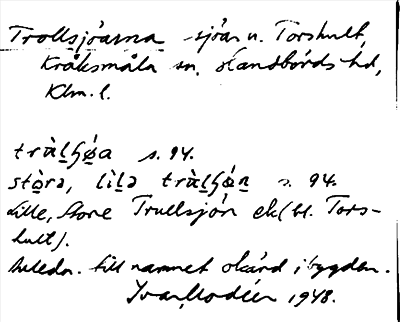 Trollsjöarna sjöar n. Torshult,
Kråksmåla sn, Handbörds hd,
Klm. l.
trùl̲ɧǿ̲a s. 94.
stò̲rə, lìl̲ə trùl̲ɧǿ̲n̲ s. 94.
Lille, Store Trullsjön ek (bl. Tors-
hult).
Anledn. till namnet okänd i bygden.
Ivar Modéer 1948.